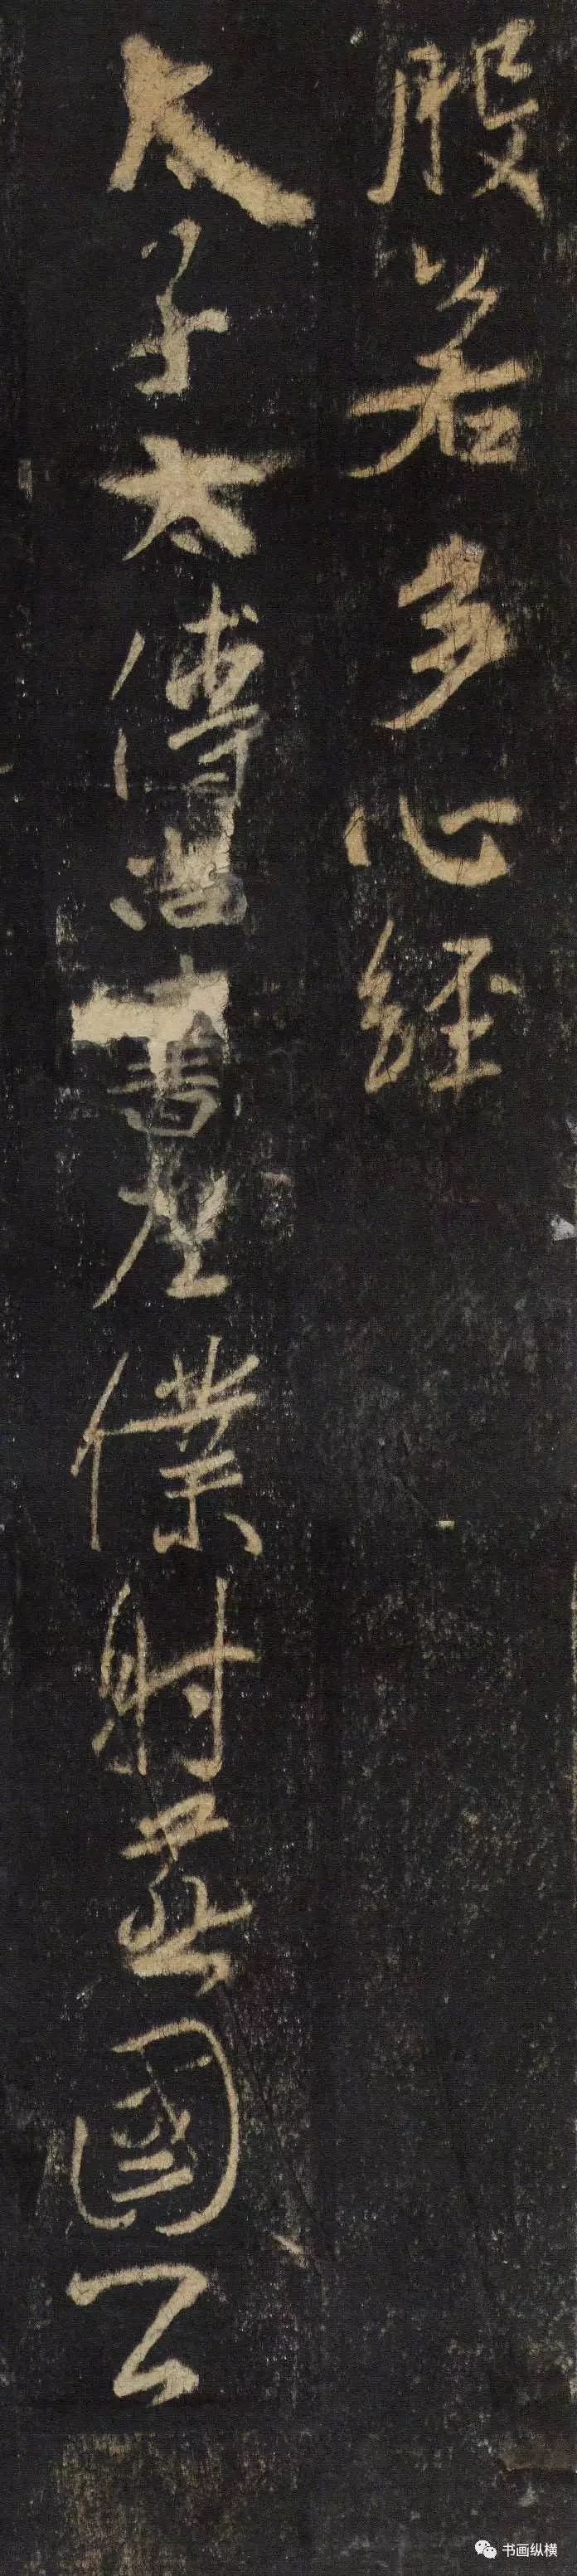 般若多心經
太子太傅尚書左僕射燕國公
书画纵横